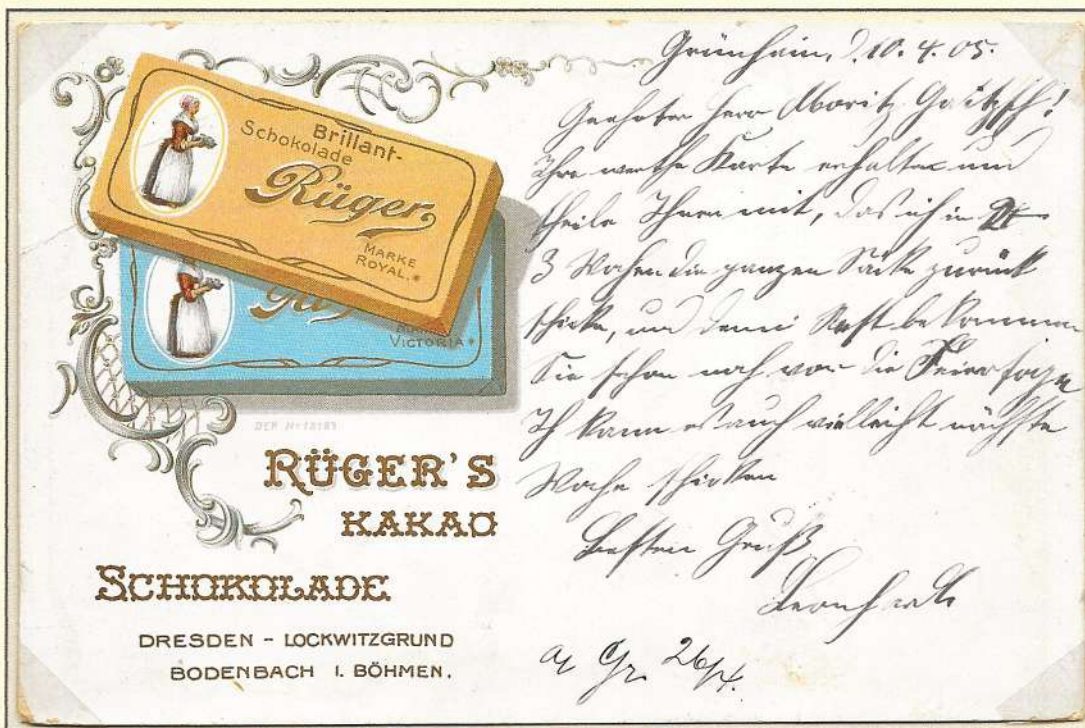 Brillant-
Schokolade
Rüger
MARKE
ROYAL.
VICTORIA
DEP. No 13183
RÜGER'S
KAKAO
SCHOKOLADE
DRESDEN - LOCKWITZGRUND
BODENBACH I. BÖHMEN.
Grünhain, d. 10. 4. 05.
Geehrter Herr Moritz
Ihre werthe Karte erhalten und
theile Ihnen mit, das ich in
3 Wochen die ganzen Säcke zurück
schicke, und den Rest bekommen
Sie schon noch vor die Feiertage
Ich kann es auch vielleicht nächste
Woche schicken
Besten Gruß
26/4.